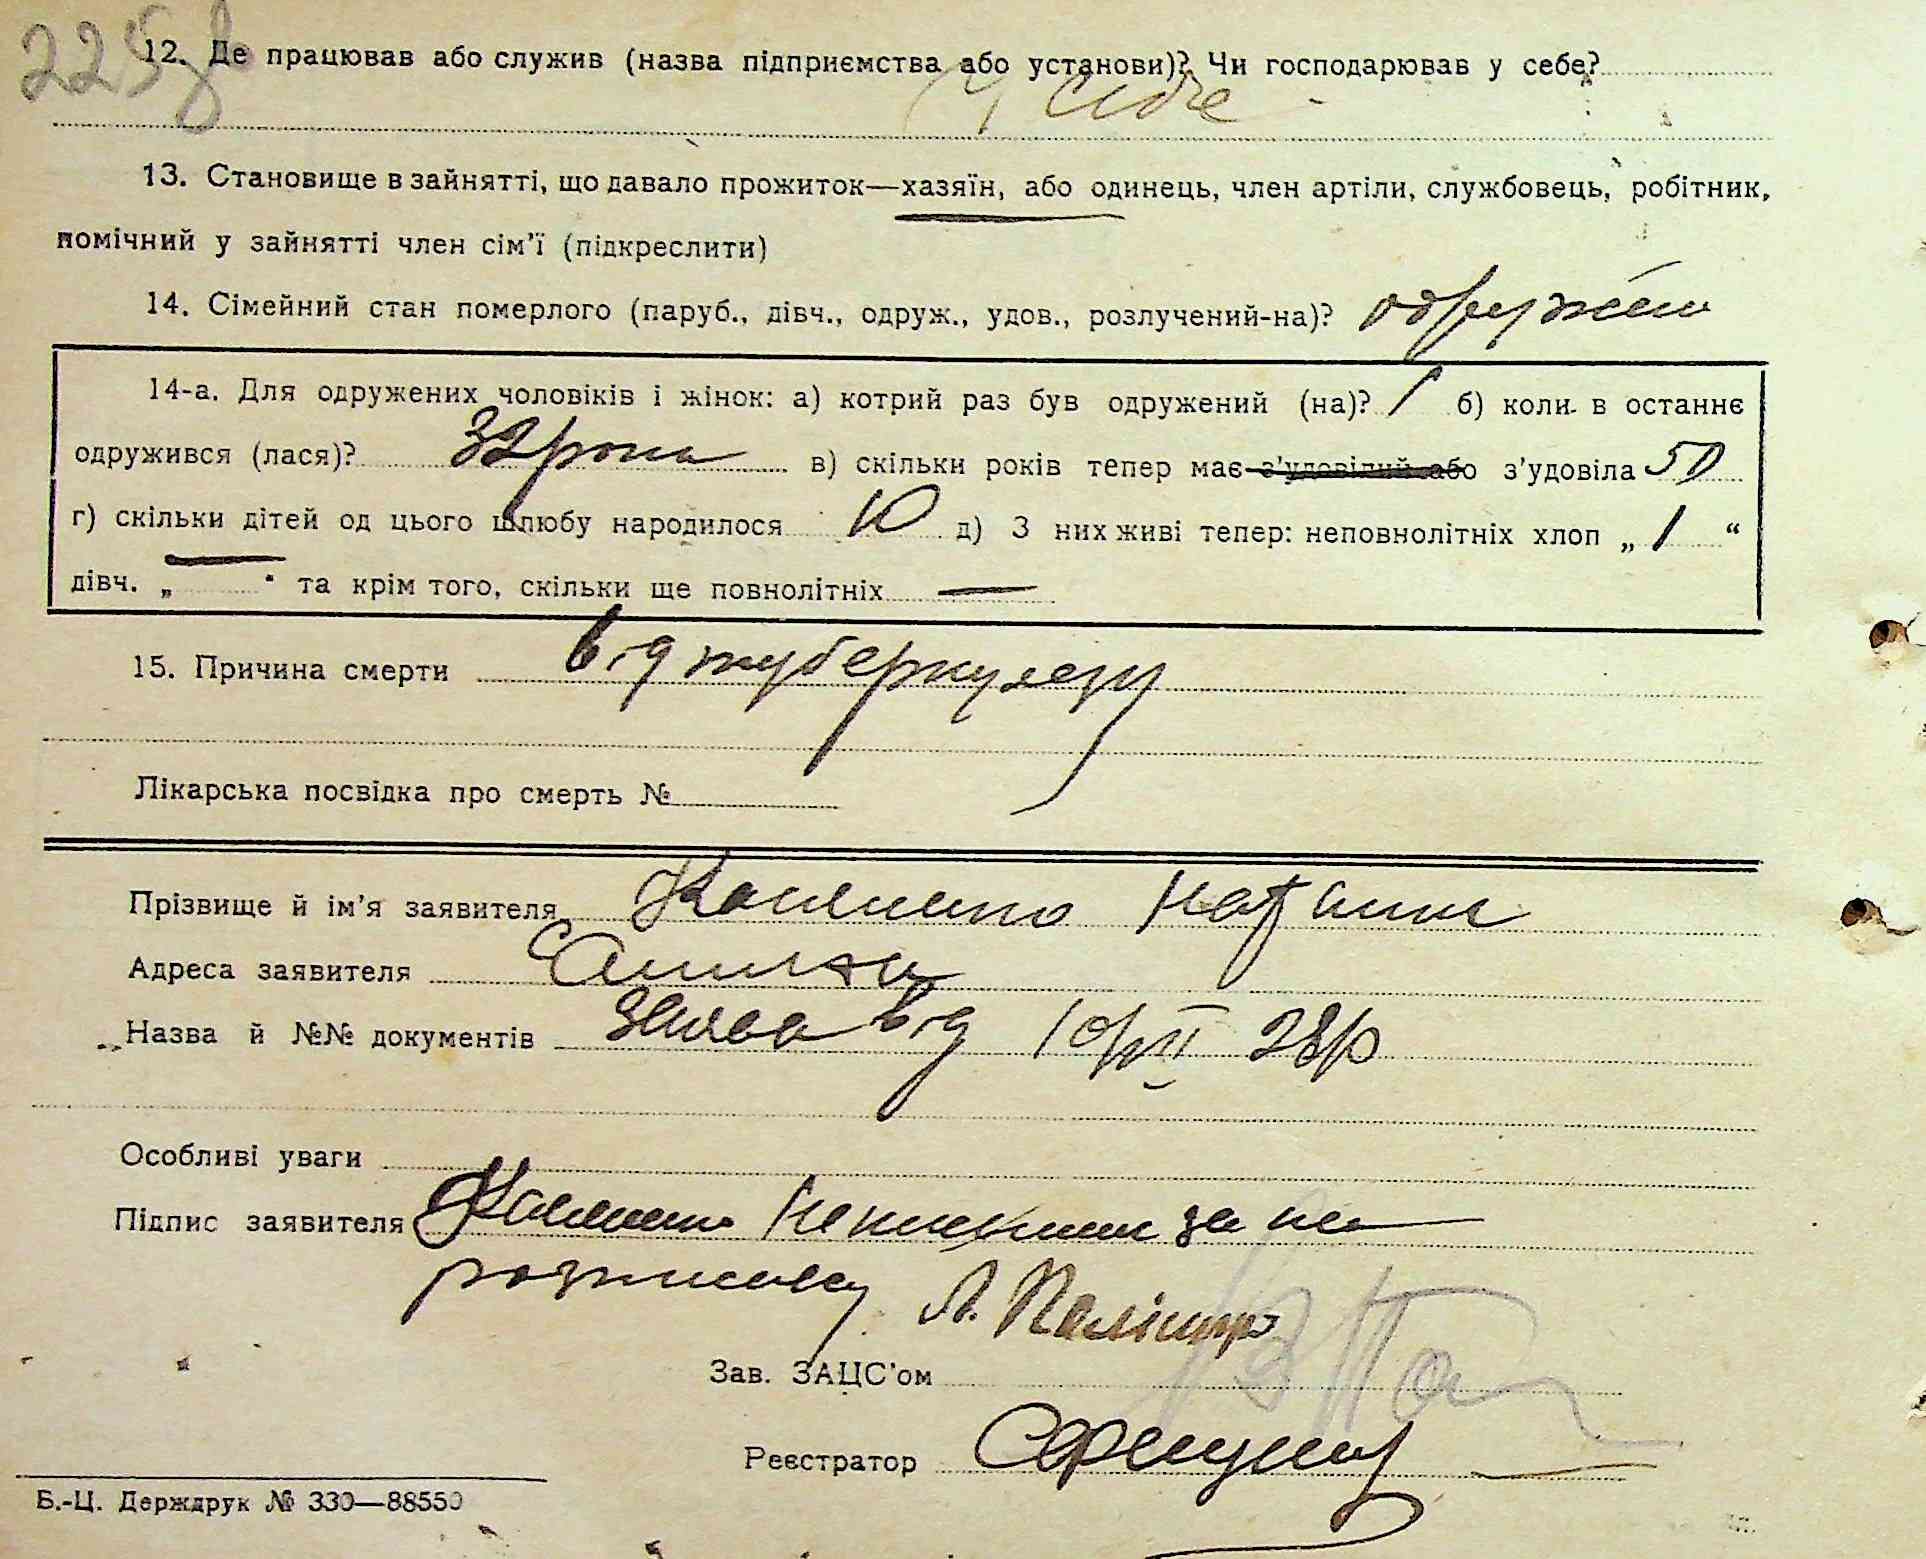 225
12. Де працював або служив (назва підприємства або установи)? Чи господарював у себе?
У себе
13. Становище в зайнятті, що давало прожиток—хазяїн, або одинець, член артіли, службовець, робітник,
помічний у зайнятті член сім'ї (підкреслити)
14. Сімейний стан померлого (паруб., дівч., одруж., удов., розлучений-на)? одружен
14-а. Для одружених чоловіків і жінок: а) котрий раз був одружений (на)? 1 б) коли в останнє
одружився (лася)? 32 роки в) скільки років тепер має з'удовілий або з'удовіла 50
г) скільки дітей од цього шлюбу народилося 10 д) З них живі тепер: неповнолітніх хлоп „ 1 “
дівч. „ — “ та крім того, скільки ще повнолітніх —
15. Причина смерти від туберкулезу
Лікарська посвідка про смерть №
Прізвище й ім'я заявителя
Адреса заявителя
Назва й №№ документів Заява від 10/VII 28р
Особливі уваги
Підпис заявителя за не
розписку Л. Паліенко
Зав. ЗАЦС'ом
Реєстратор
Б.-Ц. Держдрук № 330—88550